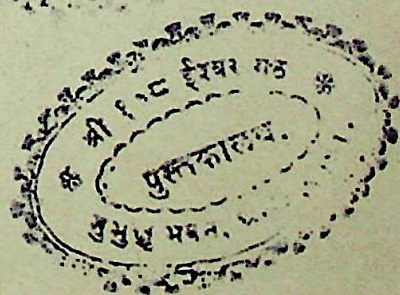 ❉ श्री १०८ ईश्वर मठ ❉
पुस्तकालय.
मुमुक्षु भवन,